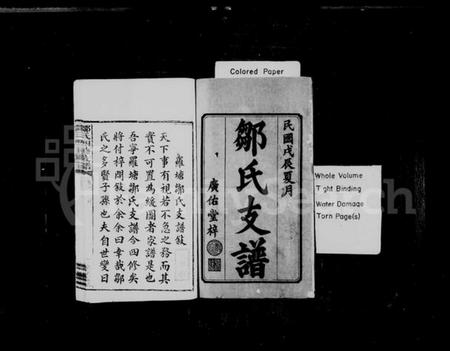 Colored Paper
民國戊辰夏月
鄒氏支譜
廣佑堂梓
Whole Volume
Tight Binding
Water Damage
Torn Page(s)
羅塘鄒氏支譜敘
天下事有視若不急之務而其
實不可置為緩圖者家譜是也
吾寧羅塘鄒氏支譜今四修矣
將付梓問敘於余余曰幸哉鄒
氏之多賢子孫也夫自世變日